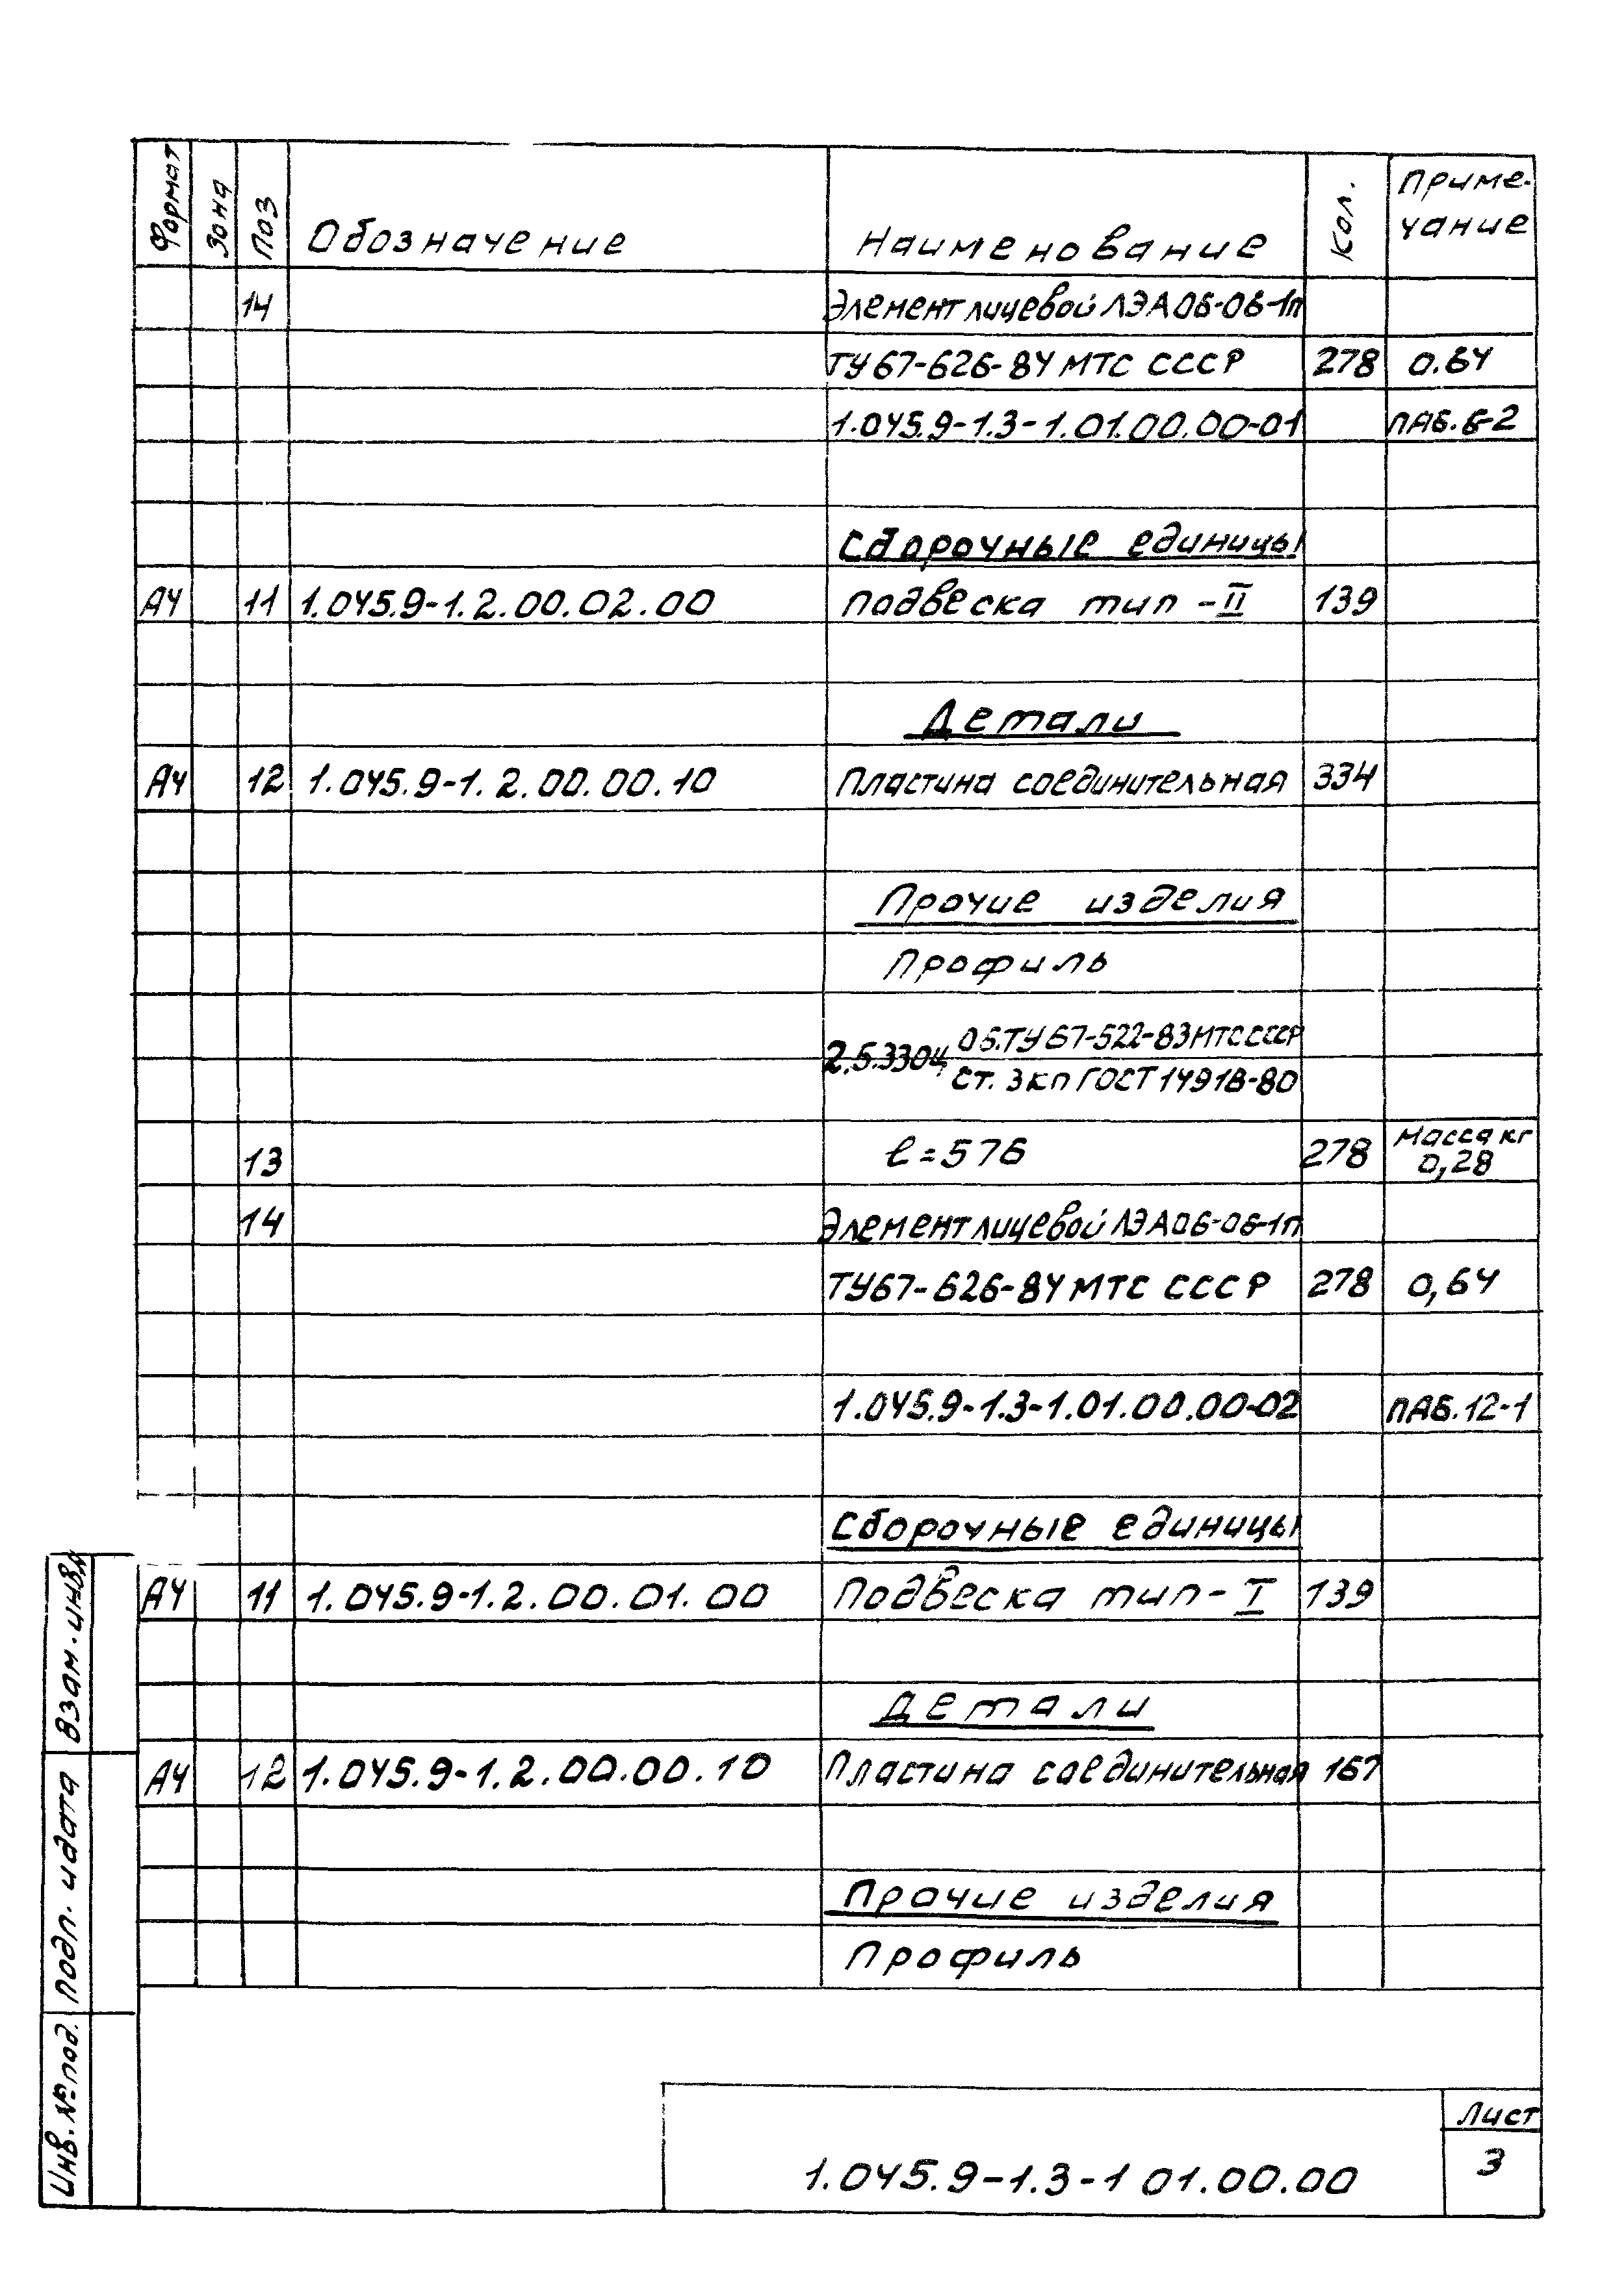 Формат Зона Поз Обозначение Наименование Кол. Приме-
чание
14 Элемент лицевой ЛЭА06-06-1п
ТУ67-626-84 МТС СССР 278 0.64
1.045.9-1.3-1.01.00.00-01 ПАБ.6-2
Сборочные единицы
А4 11 1.045.9-1.2.00.02.00 подвеска тип-II 139
Детали
А4 12 1.045.9-1.2.00.00.10 Пластина соединительная 334
Прочие изделия
Профиль
2.5.330ц 06.ТУ67-522-83 МТС СССР
Ст. 3кп ГОСТ 14918-80
13 ℓ=576 278 Масса кг
0,28
14 Элемент лицевой ЛЭА06-06-1п
ТУ67-626-84 МТС СССР 278 0,64
1.045.9-1.3-1.01.00.00-02 ПАБ.12-1
Сборочные единицы
А4 11 1.045.9-1.2.00.01.00 Подвеска тип-I 139
Детали
А4 12 1.045.9-1.2.00.00.10 Пластина соединительная 167
Прочие изделия
Профиль
Взам.инв.
Подп. и дата
Инв.№под.
1.045.9-1.3-1 01.00.00
Лист
3